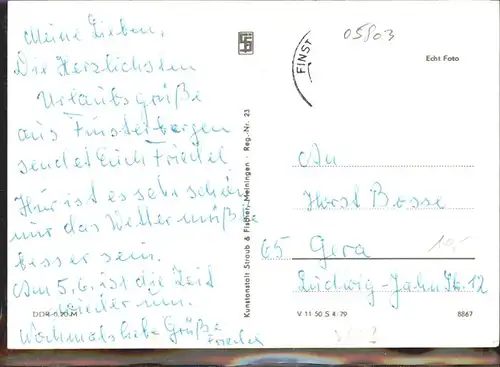 Meine Lieben,
Die Herzlichsten
Urlaubsgrüße
aus Finsterbergen
sendet Euch Friedel
Hier ist es sehr schön
nur das Wetter müßte
besser sein.
Am 5.6. ist die Zeit
wieder um.
Nochmals liebe Grüße
Friedel
DDR 0,20 M
Kunstanstalt Straub & Fischer, Meiningen · Reg.-Nr. 23
FINST
05803
Echt Foto
An
Horst Bosse
65 Gera
Ludwig-Jahn Str. 12
10,-
V 11 50 S 4/79
8867